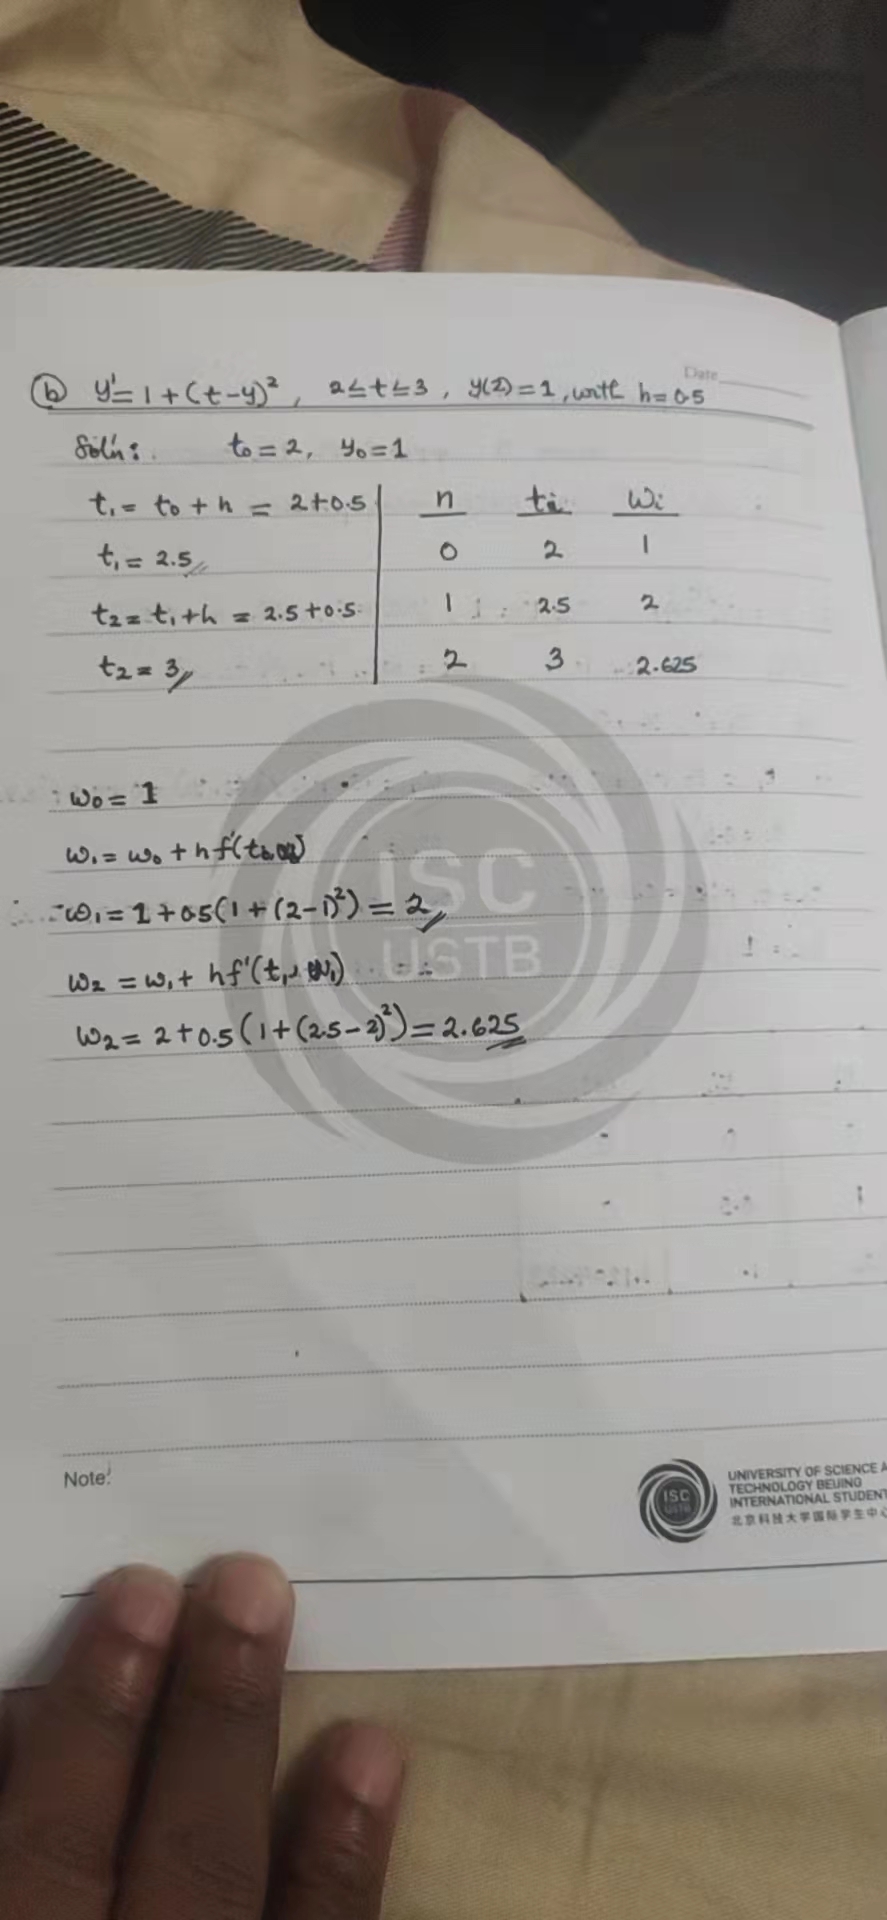 Date
ⓑ y' = 1 + (t-y)², 2≤t≤3, y(2)=1, with h=0.5
Sol'n: t₀ = 2, y₀ = 1
t₁ = t₀ + h = 2+0.5
t₁ = 2.5
t₂ = t₁+h = 2.5+0.5
t₂ = 3
n tᵢ wᵢ
0 2 1
1 2.5 2
2 3 2.625
w₀ = 1
w₁ = w₀ + hf'(t₀,
w₁ = 1 + 0.5(1 + (2-1)²) = 2
w₂ = w₁ + hf'(t₁, w₁)
w₂ = 2 + 0.5(1+(2.5-2)²) = 2.625
ISC
USTB
Note:
ISC
USTB
UNIVERSITY OF SCIENCE A
TECHNOLOGY BEIJING
INTERNATIONAL STUDENT
北京科技大学国际学生中心